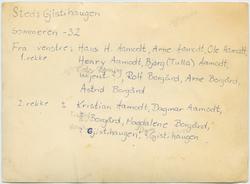 Steds Gjistihaugen
Sommeren -32
Fra venstre: Hans H. Aamodt, Arne Aamodt, Ole Aamodt
1. rekke Henry Aamodt, Bjørg (Tulla) Aamodt,
Ukjent, Rolf Borgård, Arne Borgård,
Astrid Borgård
2. rekke : Kristian Aamodt, Dagmar Aamodt,
Borgård, Magdalene Borgård,